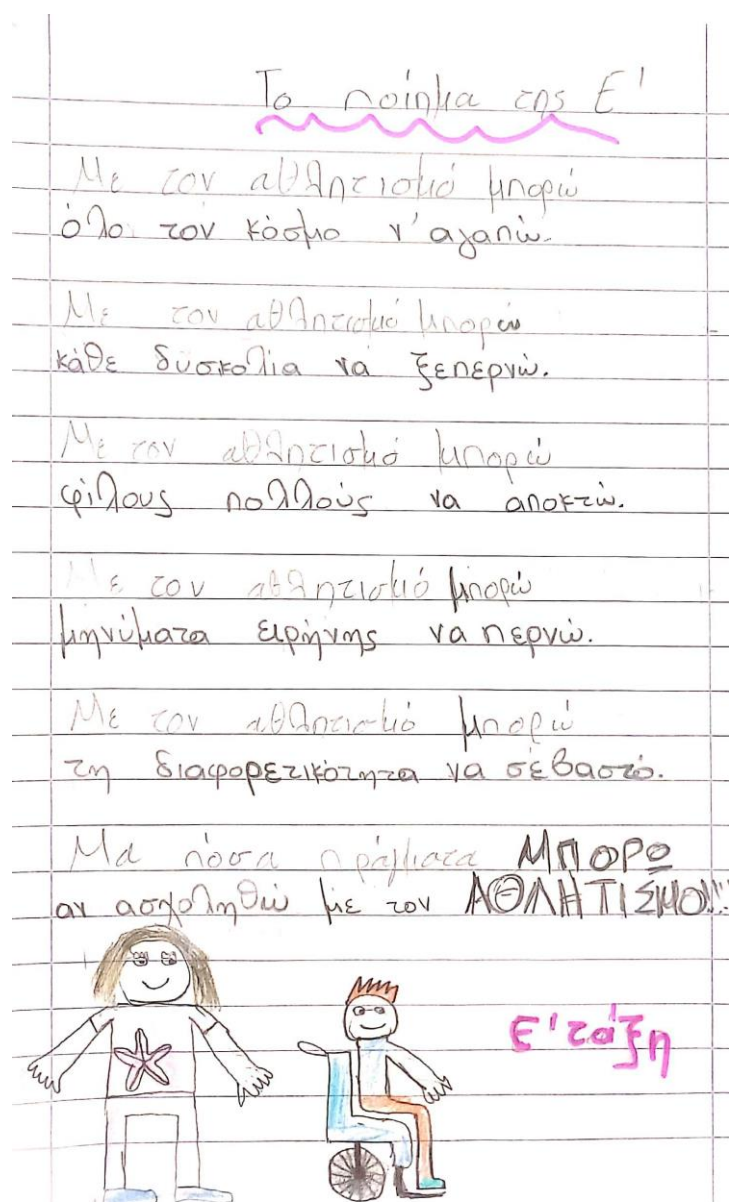 Το ποίημα της Ε'
Με τον αθλητισμό μπορώ
όλο τον κόσμο ν'αγαπώ.
Με τον αθλητισμό μπορώ
κάθε δυσκολία να ξεπερνώ.
Με τον αθλητισμό μπορώ
φίλους πολλούς να αποκτώ.
Με τον αθλητισμό μπορώ
μηνύματα ειρήνης να περνώ.
Με τον αθλητισμό μπορώ
τη διαφορετικότητα να σέβαστό.
Μα πόσα πράγματα ΜΠΟΡΩ
αν ασχοληθώ με τον ΑΘΛΗΤΙΣΜΟ!!
Ε'τάξη